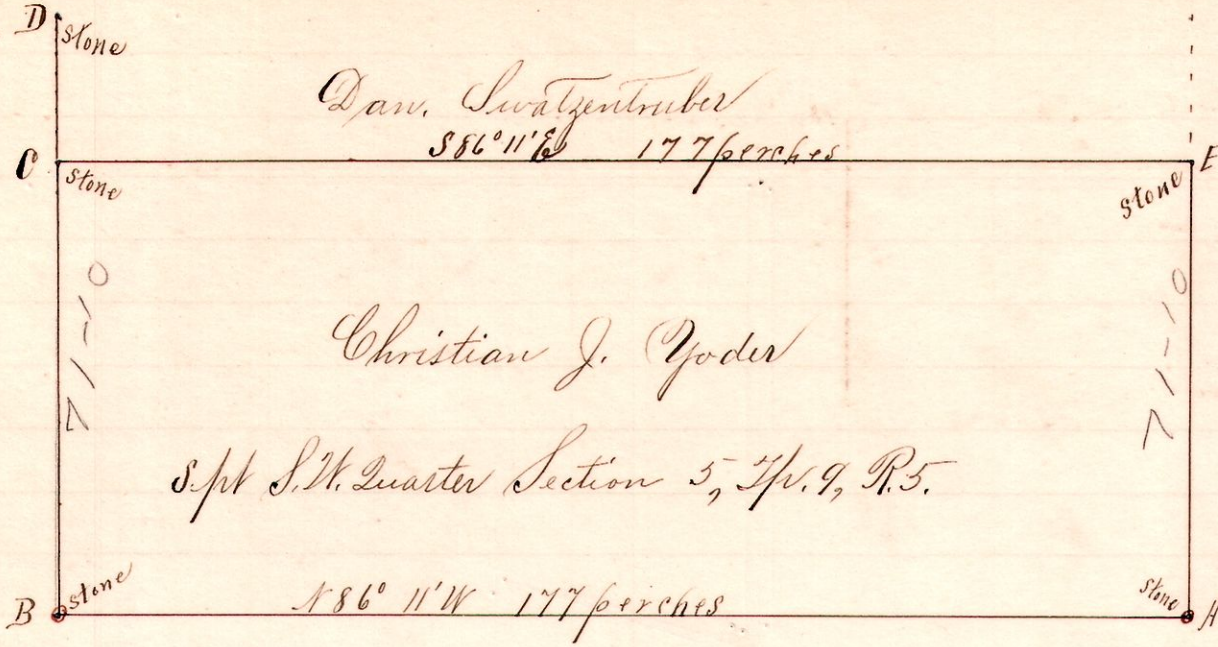 D
stone
Dan. Swatzentruber
S 86° 11' E 177 perches
C
E
stone
stone
71-10
71-10
Christian J. Yoder
S.pt S.W. Quarter Section 5, Tp. 9, R. 5.
stone
stone
N 86° 11' W 177 perches
B
A